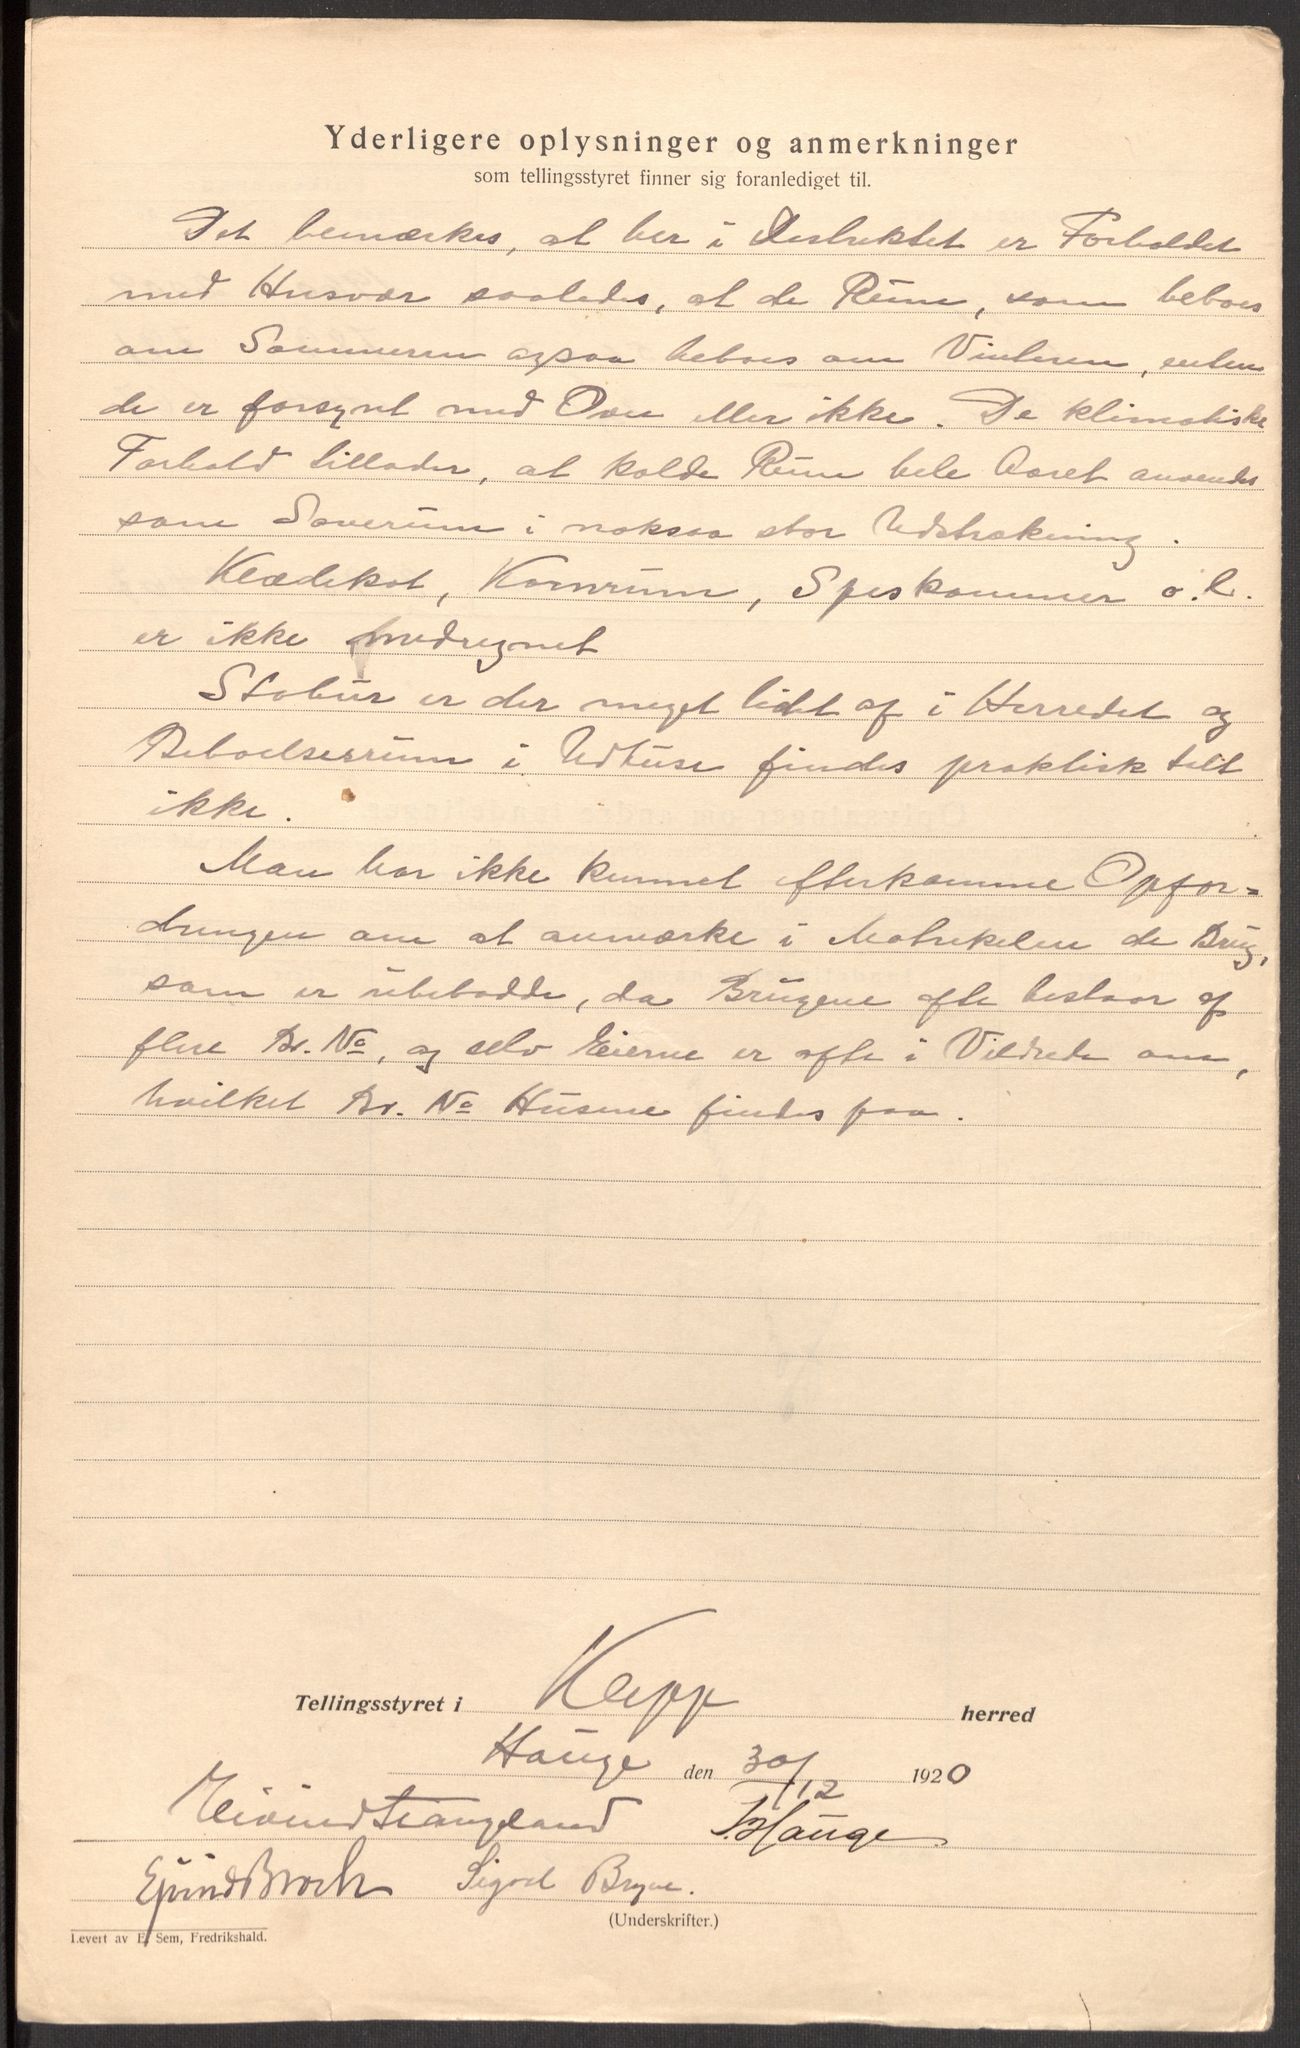 Yderligere oplysninger og anmerkninger
som tellingsstyret finner sig foranlediget til.
Det bemærkes, at her i Destriktet er Forholdet
med Husvær saaledes, at de Rum, som beboes
om Sommeren ogsaa beboes om Vinteren, enten
de er forsynt med Ovn eller ikke. De klimatiske
Forhold tillader, at kolde Rum hele Aaret anvendes
som Soverum i noksaa stor Udstrækning.
Klædekot, Kornrum, Speskammer o. l.
er ikke medregnet
Stabur er der meget lidet af i Herredet og
Beboelsesrum i Udhuse findes praktisk talt
ikke.
Man har ikke kunnet efterkomme Opfor=
dringen om at anmærke i Matrikelen de Brug,
som er ubebodde, da Brugene ofte bestaar af
flere Br. No, og selv Eierne er ofte i Vildrede om,
hvilket Br. No Husene findes paa.
Tellingsstyret i Klepp herred
Hauge den 30/12 1920
Eivind Tiangeland Hauge
Ejvind Broch Sigvel Bryne.
(Underskrifter.)
Levert av E. Sem, Fredrikshald.